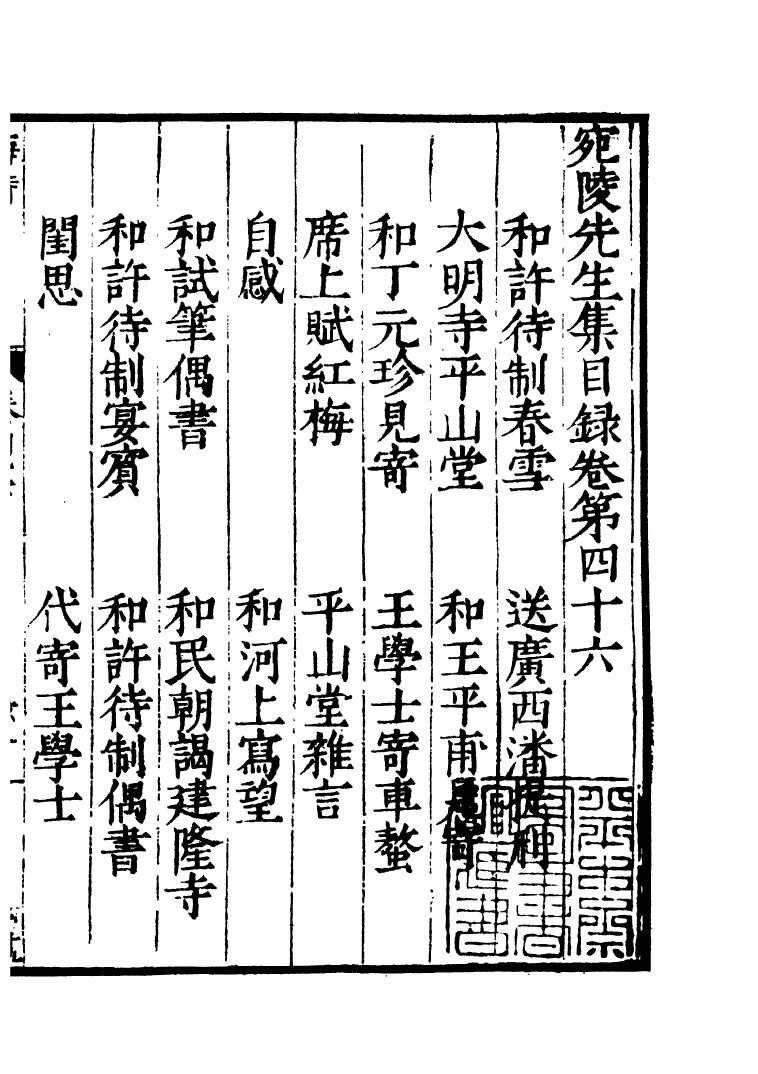 宛陵先生集目録卷第四十六
和許待制春雪 送廣西潘提刑
大明寺平山堂 和王平甫見寄
和丁元珍見寄 王學士寄車螯
席上賦紅梅 平山堂雜言
自感 和河上寫望
和試筆偶書 和民朝謁建隆寺
和許待制宴賓 和許待制偶書
閨思 代寄王學士